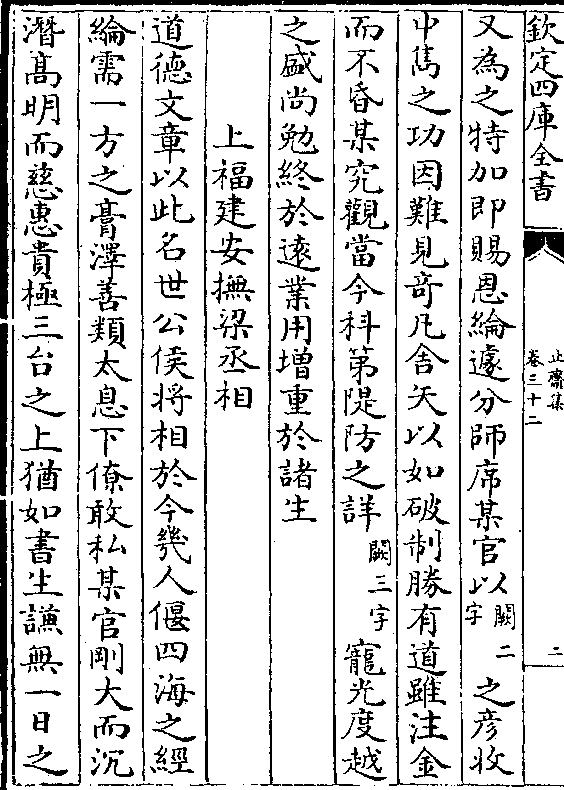 欽定四庫全書
止齋集
卷三十二
二
又為之特加即賜恩綸遽分師席某官以闕二字之彦收
中雋之功因難見竒凡舍矢以如破制勝有道雖注金
而不昏某究觀當今科第隄防之詳闕三字寵光度越
之盛尚勉終於遠業用增重於諸生
上福建安撫梁丞相
道德文章以此名世公侯將相於今幾人偃四海之經
綸需一方之膏澤善類太息下僚敢私某官剛大而沉
潛髙明而慈惠貴極三台之上猶如書生謙無一日之